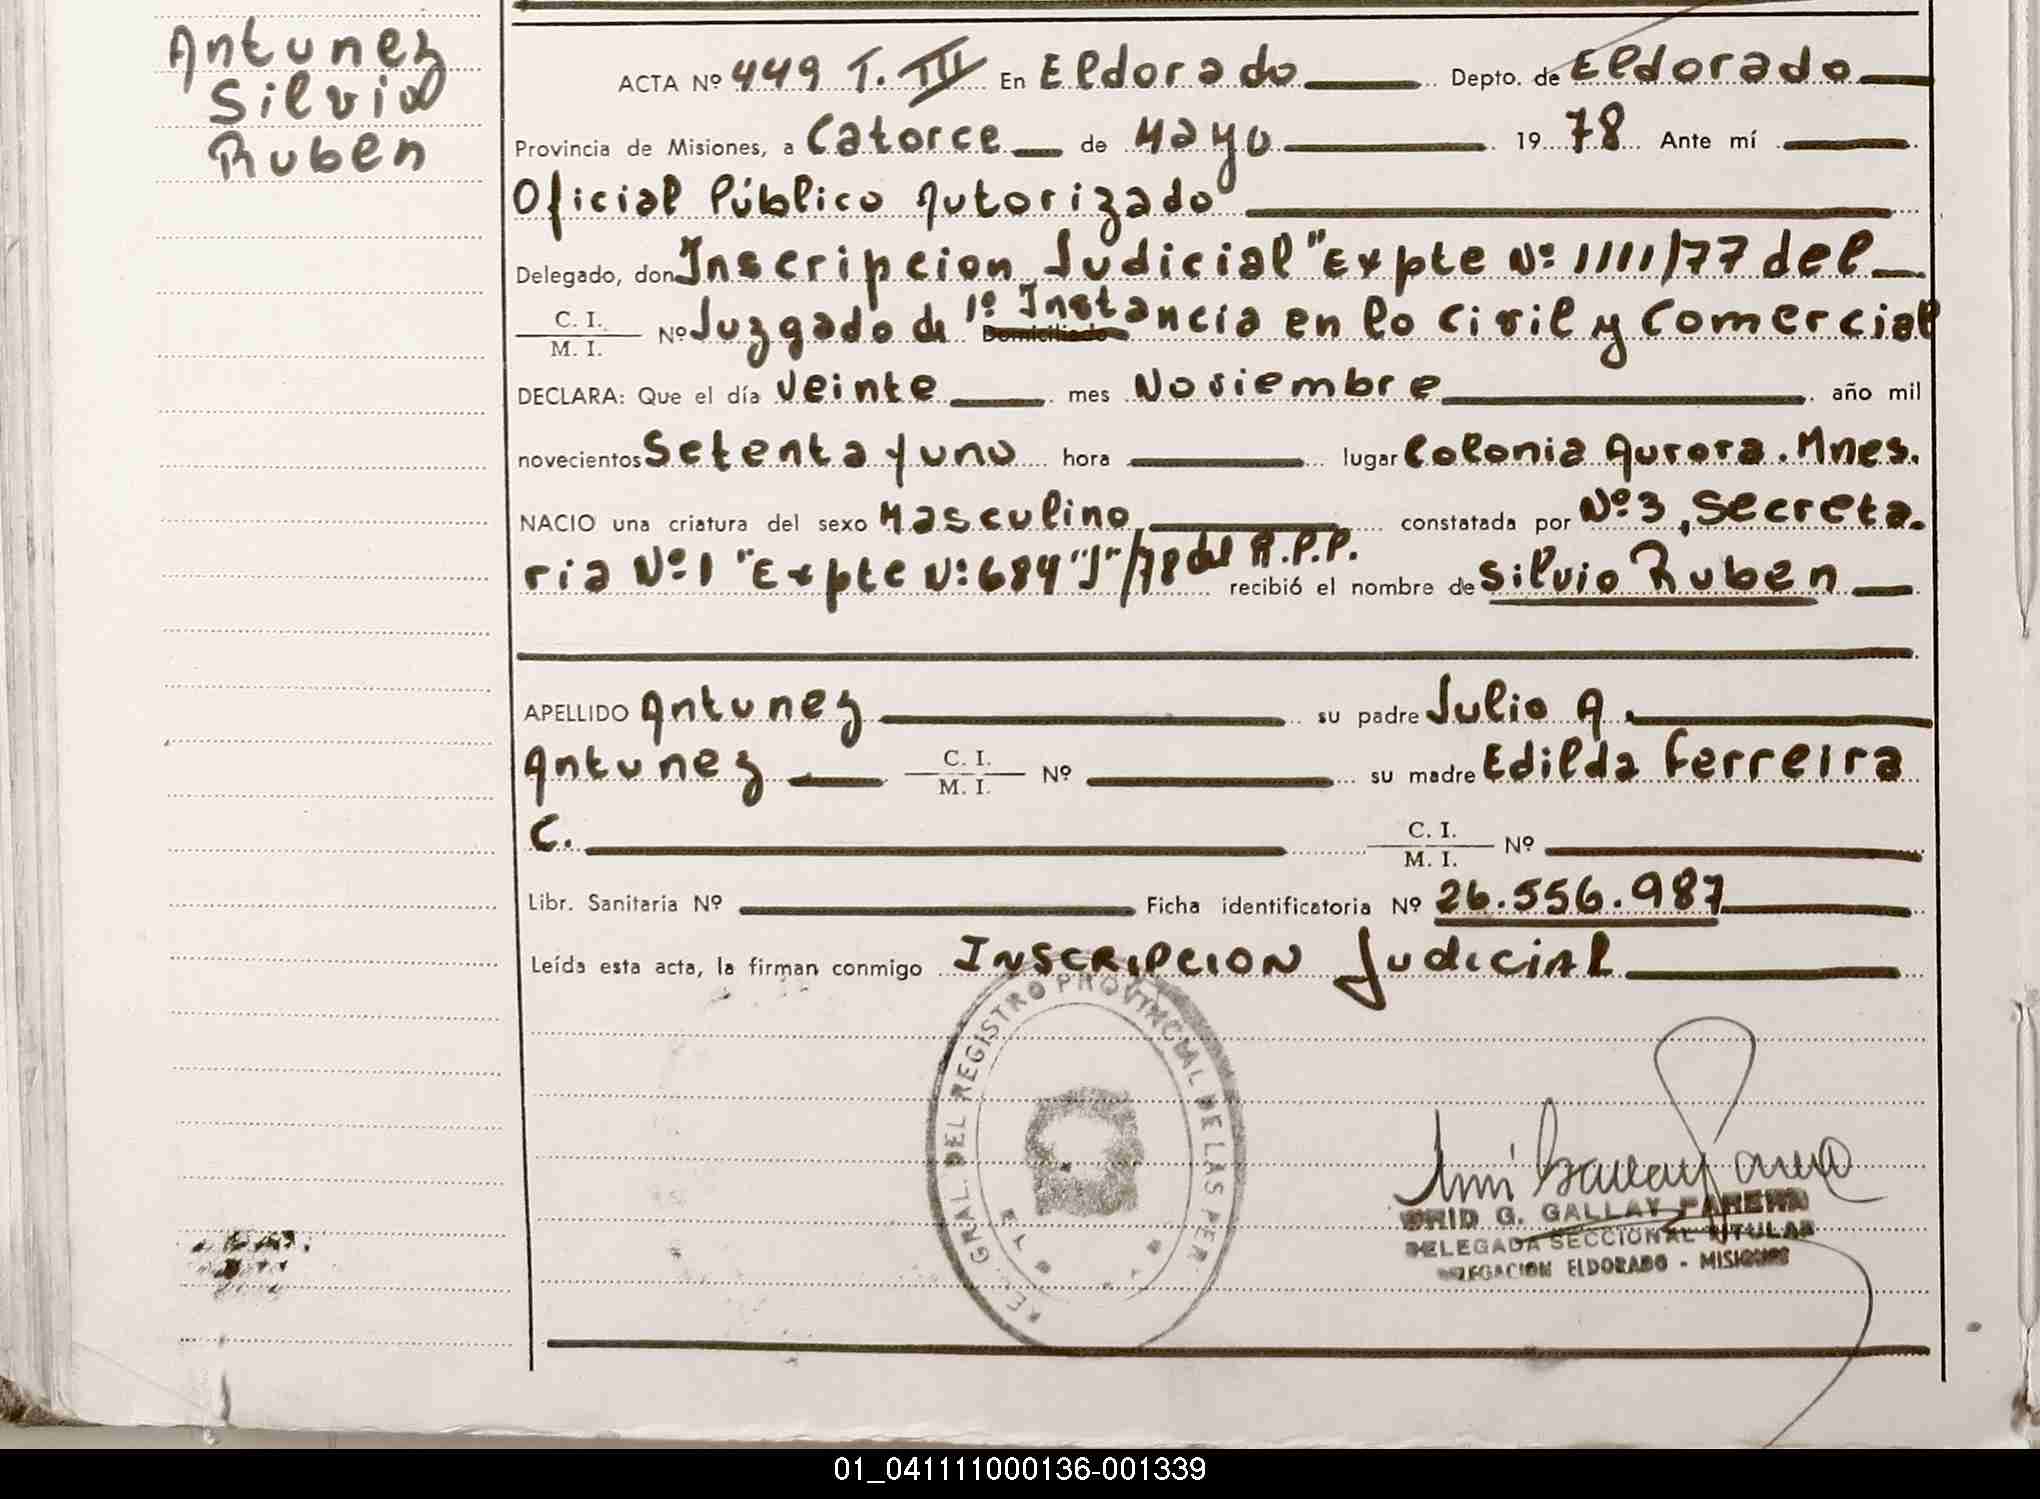 Antunez
Silvio
Ruben
ACTA Nº 449 T. III En Eldorado Depto. de Eldorado
Provincia de Misiones, a Catorce de Mayo 19 78 Ante mí
Oficial Público Autorizado
Delegado, don Inscripcion Judicial "Expte Nº 1111/77 del
C. I.
M. I. Nº Juzgado de 1º Instancia en lo Civil y Comercial
DECLARA: Que el día Veinte mes Noviembre año mil
novecientos Setenta y uno hora lugar Colonia Aurora. Mnes.
NACIO una criatura del sexo Masculino constatada por Nº 3, Secreta.
ria Nº 1 "Expte Nº 684 "J"/78 del R.P.P. recibió el nombre de Silvio Ruben
APELLIDO Antunez su padre Julio A.
Antunez C. I. M. I. Nº su madre Edilda Ferreira
C. C. I. M. I. Nº
Libr. Sanitaria Nº Ficha identificatoria Nº 26.556.987
Leída esta acta, la firman conmigo INSCRIPCION Judicial
GRAL. DEL REGISTRO PROVINCIAL DE LAS PER
G. GALLAY
DELEGADA SECCIONAL TITULAR
DELEGACION ELDORADO - MISIONES
01_041111000136-001339